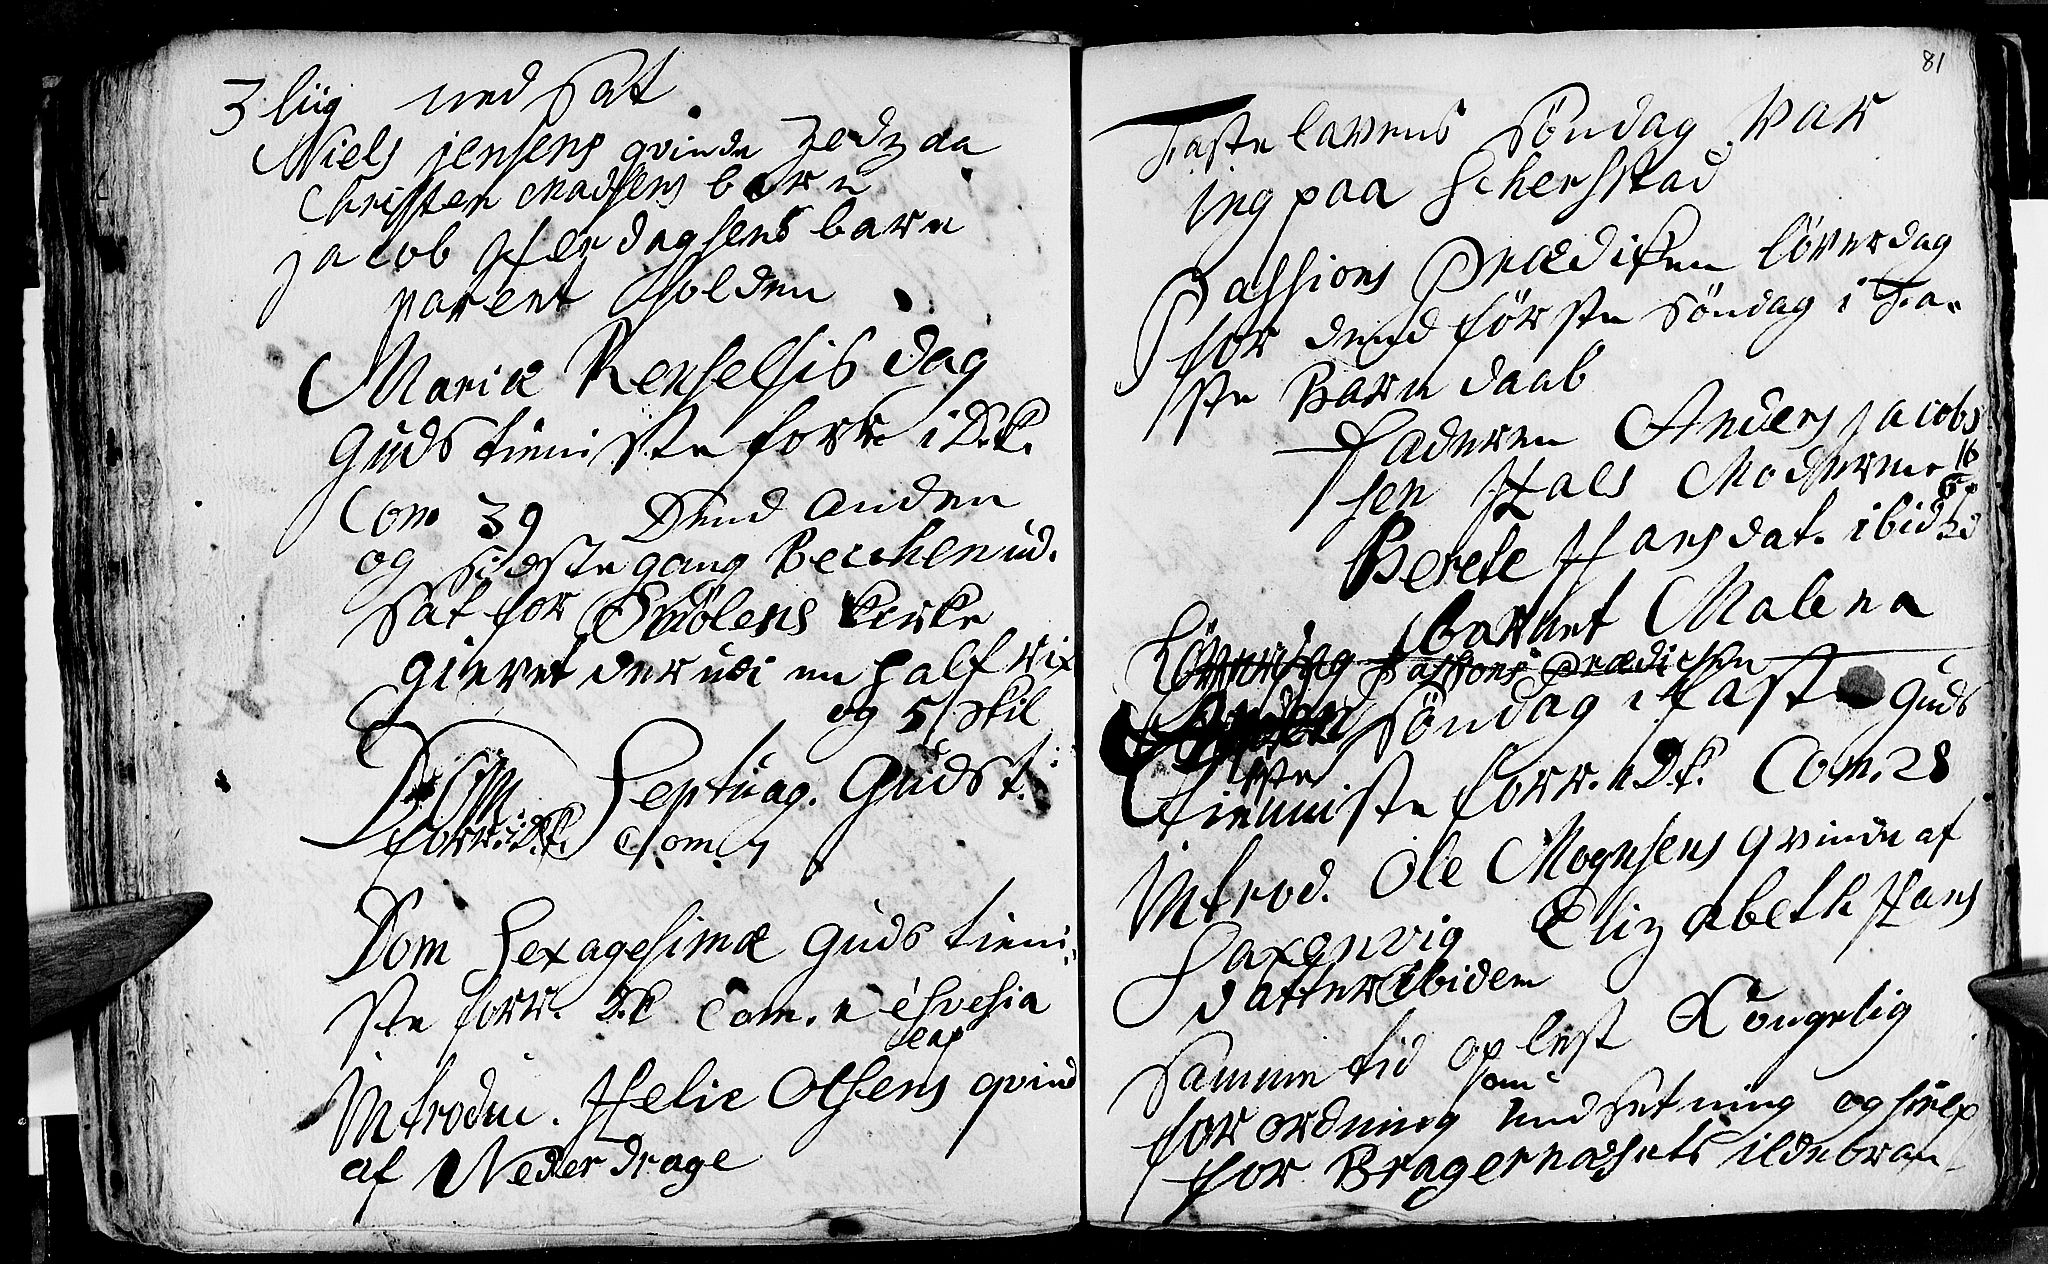 3 liig ned sat
Niels jensens qvinde
Christen Madsens barn
jacob Herdagsens barn
parent Holden
Mariæ Renselsis dag
Guds tieniste forr. i D.k.
Com 39 Dend anden
og sidste gang Becchen ud.
sat for Smölens kirke
gievet der udi en half rix
og 5 skil
Dom Septuag. Guds t.
forr. i D.k. Com. 7
Dom Sexagesimæ Guds tieni
ste forr. D.k Com. e
Introduc. Helie Olsens qvind
af Neder drage
81
Faste lavens Söndag var
ing paa Scherstad
Passions Prædiken löverdag
for dend förste Söndag i Fa-
ste Barn daab
Faderen Anders jacob
sen Hals Moderen
Berete Hansdat. ibid
Barnet Malena
Löverdag Passions Prædichen
Söndag i Faste Guds
ste
tieniste forr. i D.k. Com. 28
Introd. Ole Mognsens qvinde af
Saxenvig Elizabeth Hans
datter Ibidem
Samme tid op lest Kongelig
om
for ordning und setning og hielp
for Bragernæsets ildebran